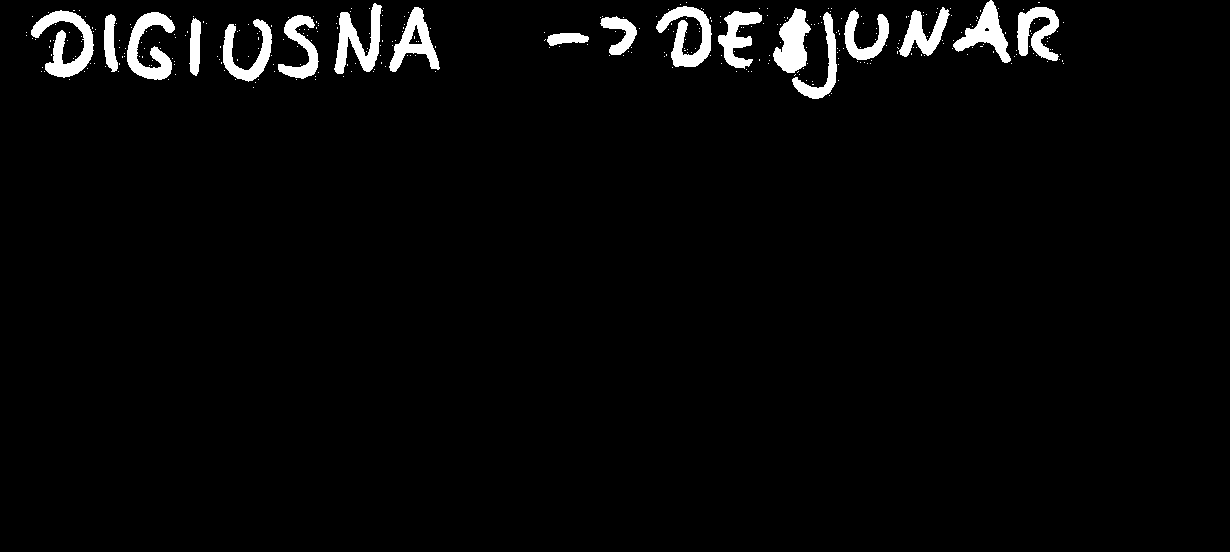 DIGIUSNA -> DEJUNAR